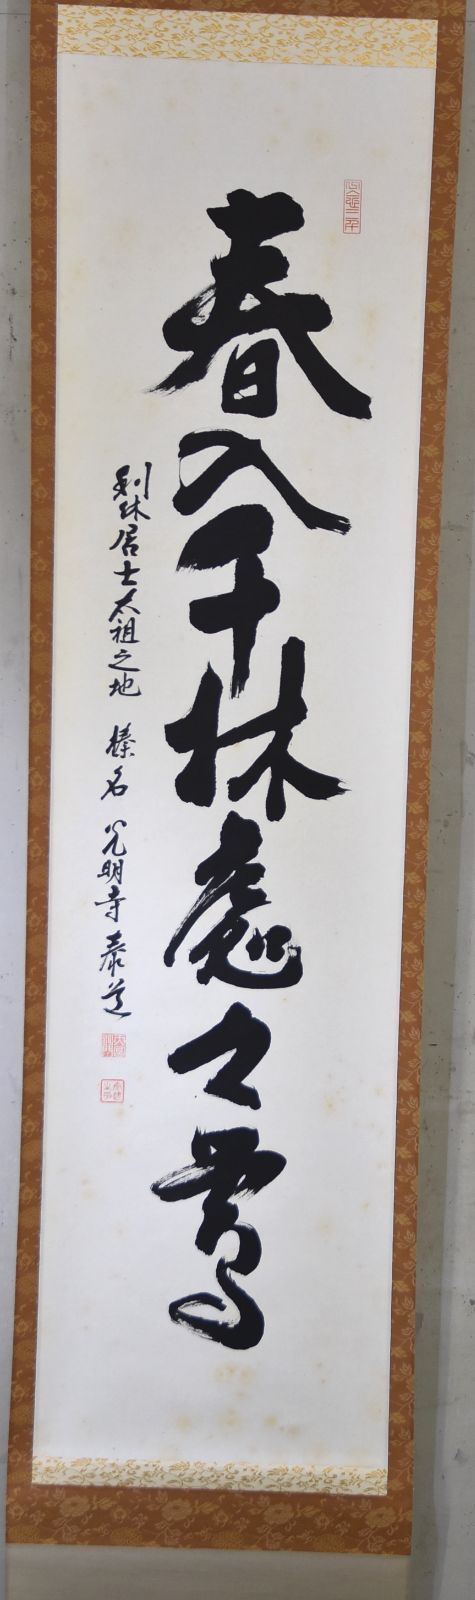 春入千林處々鶯
利休居士太祖之地 榛名 光明寺泰道